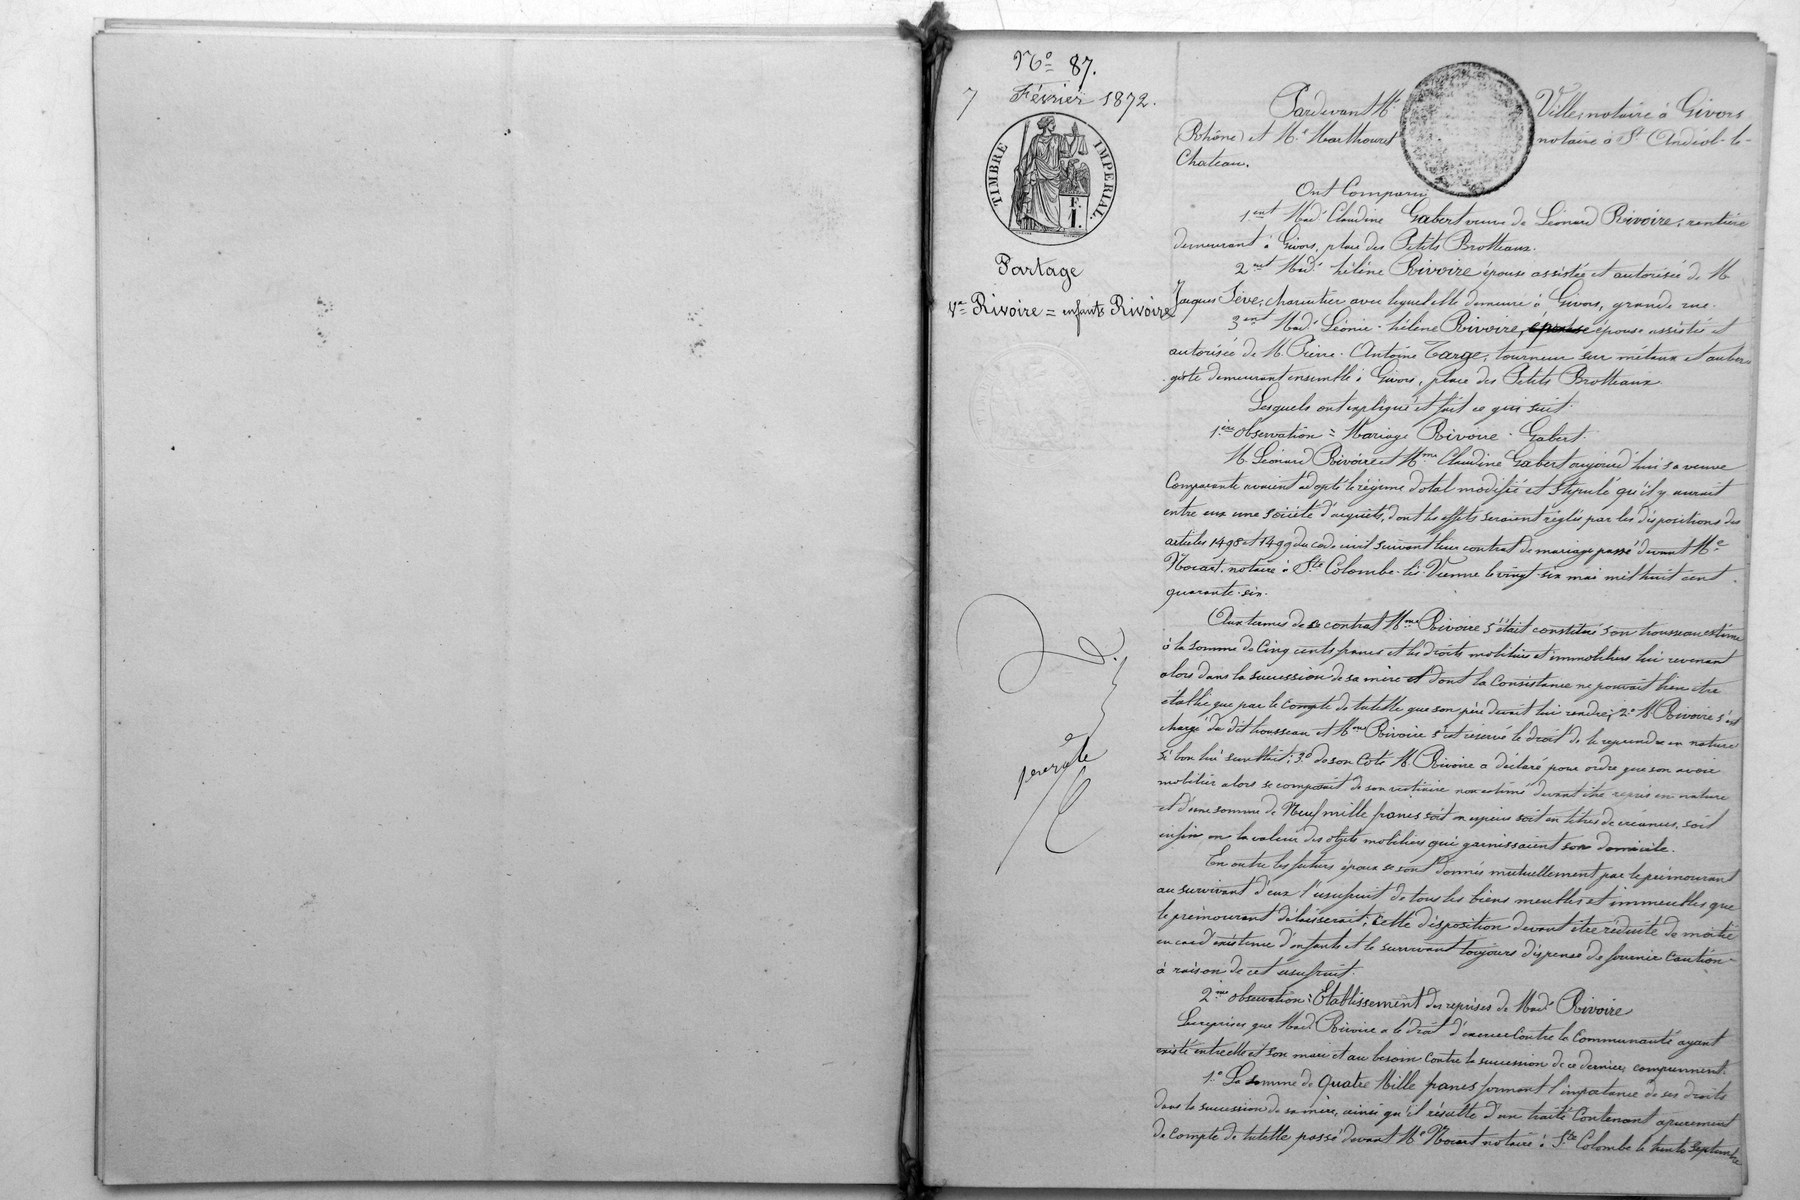 No 87.
7 Février 1872.
TIMBRE IMPERIAL.
F.
1.
Partage
Vve Rivoire = enfants Rivoire
Pardevant Me Ville, notaire à Givors
(Rhône) et Me Marthouret notaire à St Andéol-le-
Chateau.
Ont Comparu
1ent Made Claudine Gabert veuve de Léonard Rivoire, rentière
demeurant à Givors, place des Petits Brotteaux.
2ent Made hélène Rivoire épouse assistée et autorisée de M.
Jacques Sève, charcutier avec lequel elle demeure à Givors, grande rue.
3ent Made Léonie-hélène Rivoire, épouse épouse assistée et
autorisée de M. Pierre-Antoine Targe, tourneur sur métaux et auber-
giste demeurant ensemble à Givors, place des Petits Brotteaux.
Lesquels ont expliqué et fait ce qui suit.
1ère observation = Mariage Rivoire-Gabert.
M. Léonard Rivoire et Mme Claudine Gabert aujourd'hui sa veuve
Comparante avaient adopté le régime dotal modifié et stipulé qu'il y aurait
entre eux une société d'acquêts, dont les effets seraient réglés par les dispositions des
articles 1498 et 1499 du code civil suivant leur contrat de mariage passé devant Me
notaire à Ste Colombe-lès-Vienne le vingt-six mai mil huit cent
quarante-six.
Aux termes de ce contrat Mme Rivoire s'était constitué son trousseau estimé
à la somme de Cinq cents francs et les droits mobiliers et immobiliers lui revenant
alors dans la succession de sa mère et dont la Consistance ne pouvait bien être
établie que par le compte de tutelle que son père devait lui rendre; 2o M Rivoire s'est
chargé du dit trousseau et Mme Rivoire s'est reservé le droit de le reprendre en nature
si bon lui semblait; 3o de son Coté M. Rivoire a déclaré pour ordre que son avoir
mobilier alors se composait de son vestiaire non estimé devant être repris en nature
et d'une somme de Neuf mille francs soit en espèces soit en titres de creances, soit
enfin en la valeur des objets mobiliers qui garnissaient son domicile.
En outre les futurs époux se sont donnés mutuellement par le prémourant
au survivant d'eux l'usufruit de tous les biens meubles et immeubles que
le prémourant délaisserait; cette disposition devant être réduite de moitié
en cas d'existence d'enfants et le survivant toujours dispensé de fournir Caution
à raison de cet usufruit.
2me observation: Etablissement des reprises de Made Rivoire
Les reprises que Made Rivoire a le droit d'exercer Contre la Communauté ayant
existé entre elle et son mari et au besoin Contre la succession de ce dernier, comprennent:
1o La somme de Quatre Mille francs formant l'importance de ses droits
dans la succession de sa mère, ainsi qu'il résulte d'un traité Contenant apurement
de Compte de tutelle passé devant Me notaire à Ste Colombe le trente Septembre